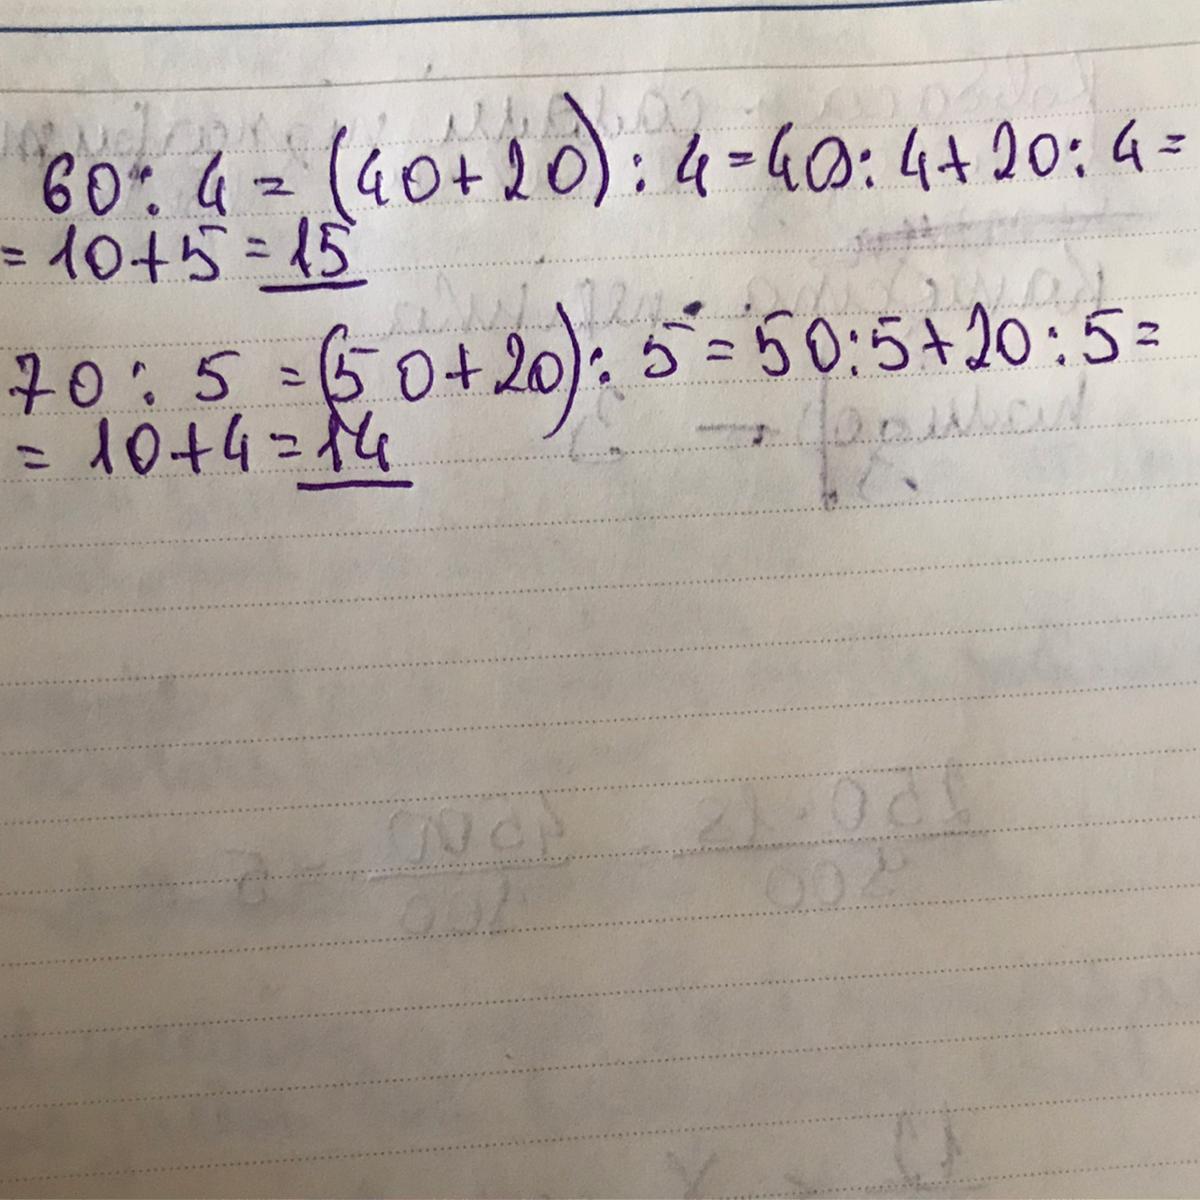 60 : 4 = (40+20) : 4 = 40 : 4 + 20 : 4 =
= 10+5 = 15
70 : 5 = (50+20) : 5 = 50:5+20:5=
= 10+4 = 14